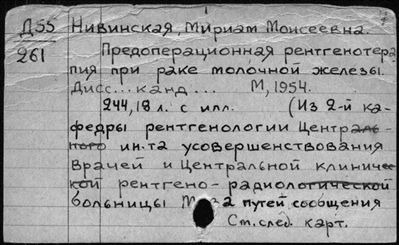 Д55 Нивинская, Мириам Моисеевна.
261 Предоперационная рентгенотера
пия при раке молочной железы.
Дисс... канд... М, 1954.
244,18 л. с илл. (Из 2-й ка-
федры рентгенологии Централь-
ного ин-та усовершенствования
Врачей и Центральной клиниче-
кой рентгено-радиологической
больницы М-ва путей сообщения
См. след. карт.